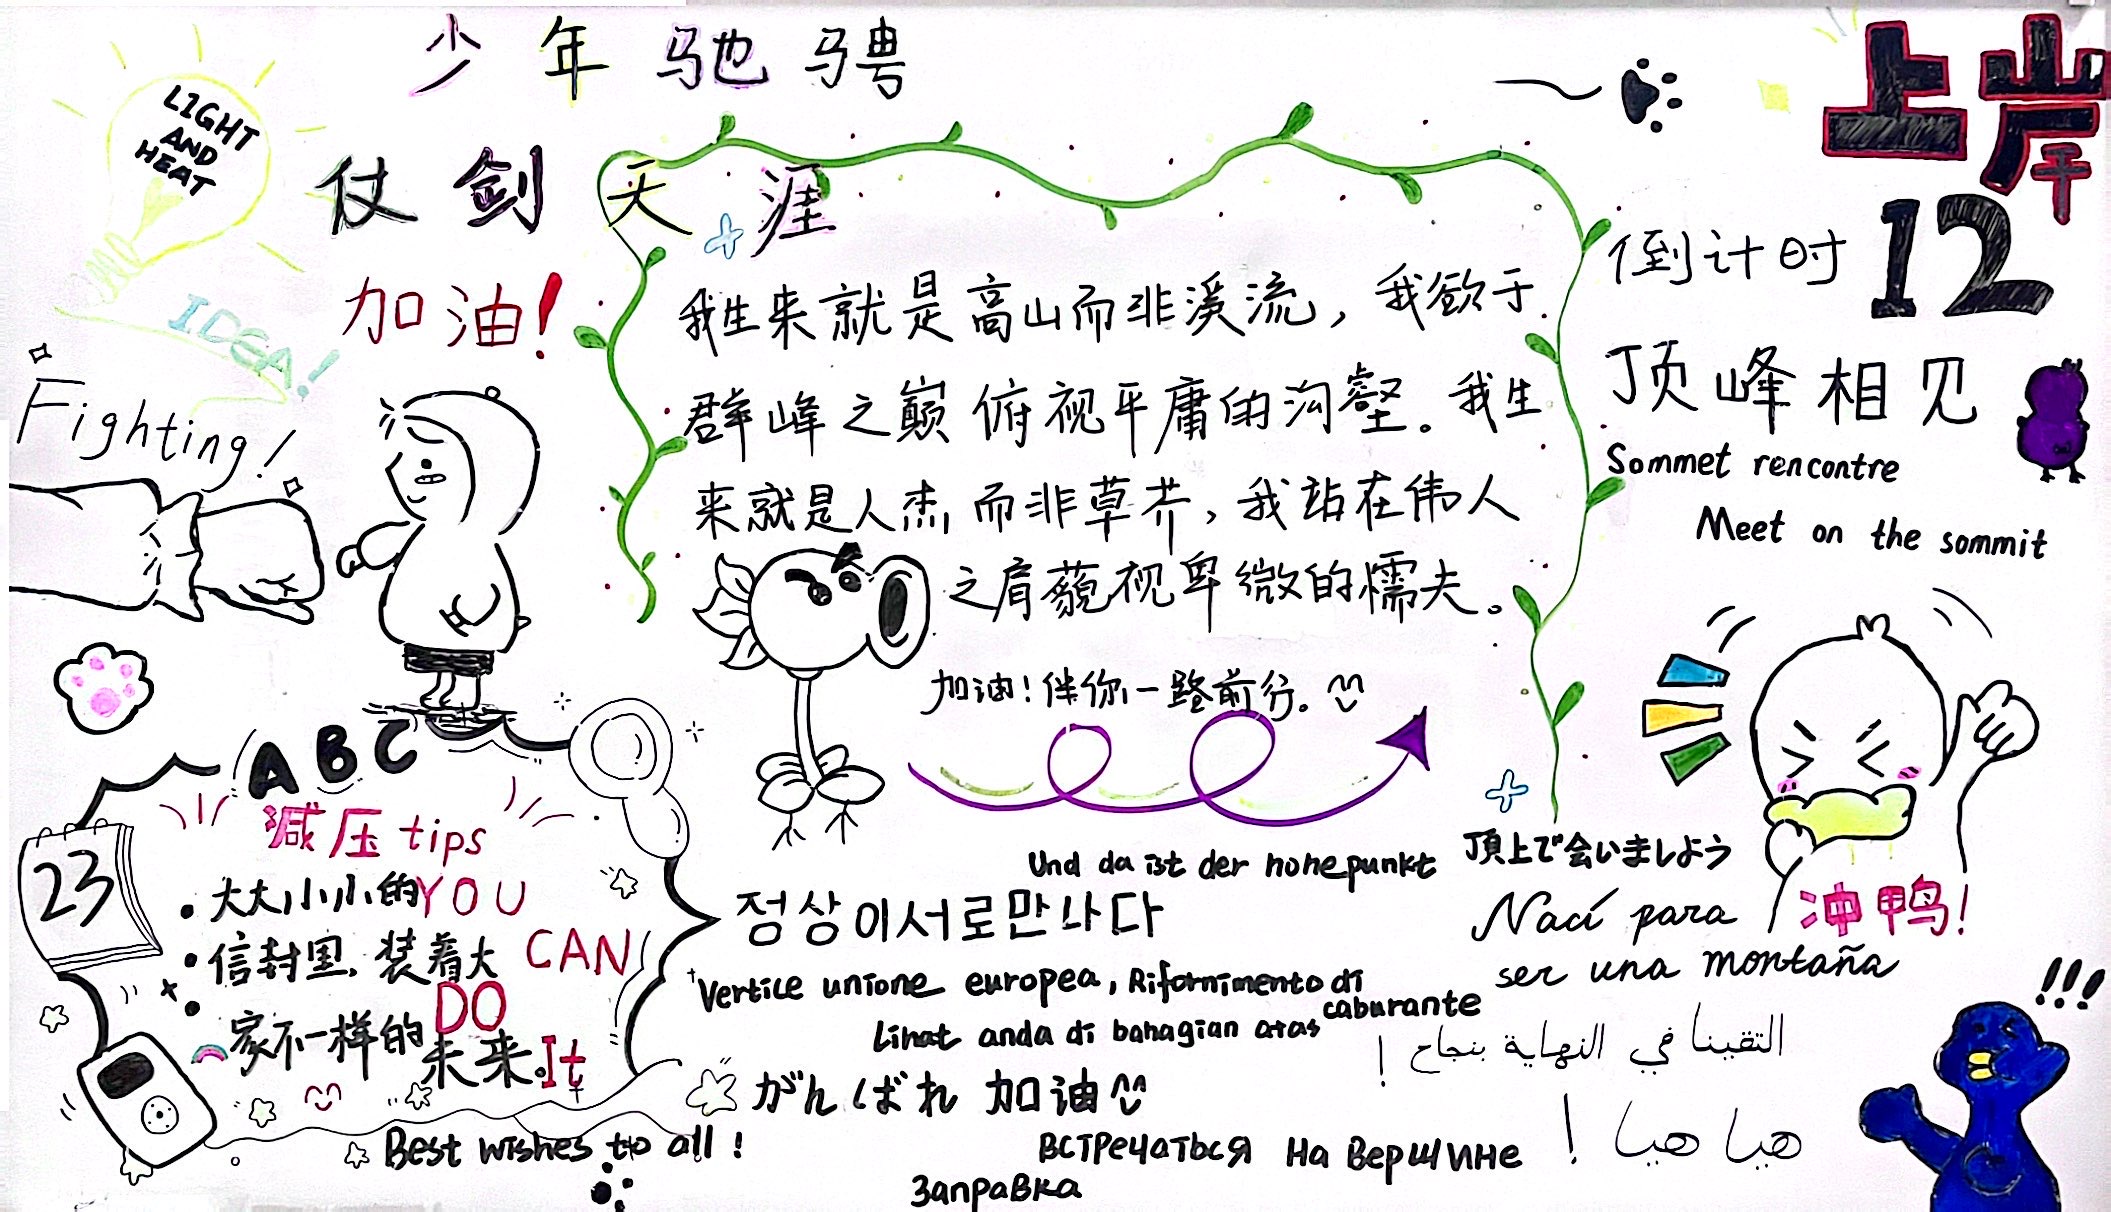 少年驰骋
仗剑天涯
上岸
LIGHT
AND
HEAT
IDEA!
加油!
Fighting!
倒计时12
顶峰相见
Sommet rencontre
Meet on the sommit
我生来就是高山而非溪流，我欲于
群峰之巅俯视平庸的沟壑。我生
来就是人杰而非草芥，我站在伟人
之肩藐视卑微的懦夫。
加油！伴你一路前行。
ABC
减压tips
23
大大小小的
信封里,装着大
家不一样的
未来.
YOU
CAN
DO
It
Best wishes to all!
Und da ist der hohepunkt
頂上で会いましよう
정상이서로만나다
Nací para
ser una montaña
冲鸭!
Vertice unione europea, Rifornimento di
caburante
Lihat anda di bahagian atas
التقينا في النهاية بنجاح !
がんばれ 加油
هيا هيا !
Встречаться на вершине
Заправка
!!!